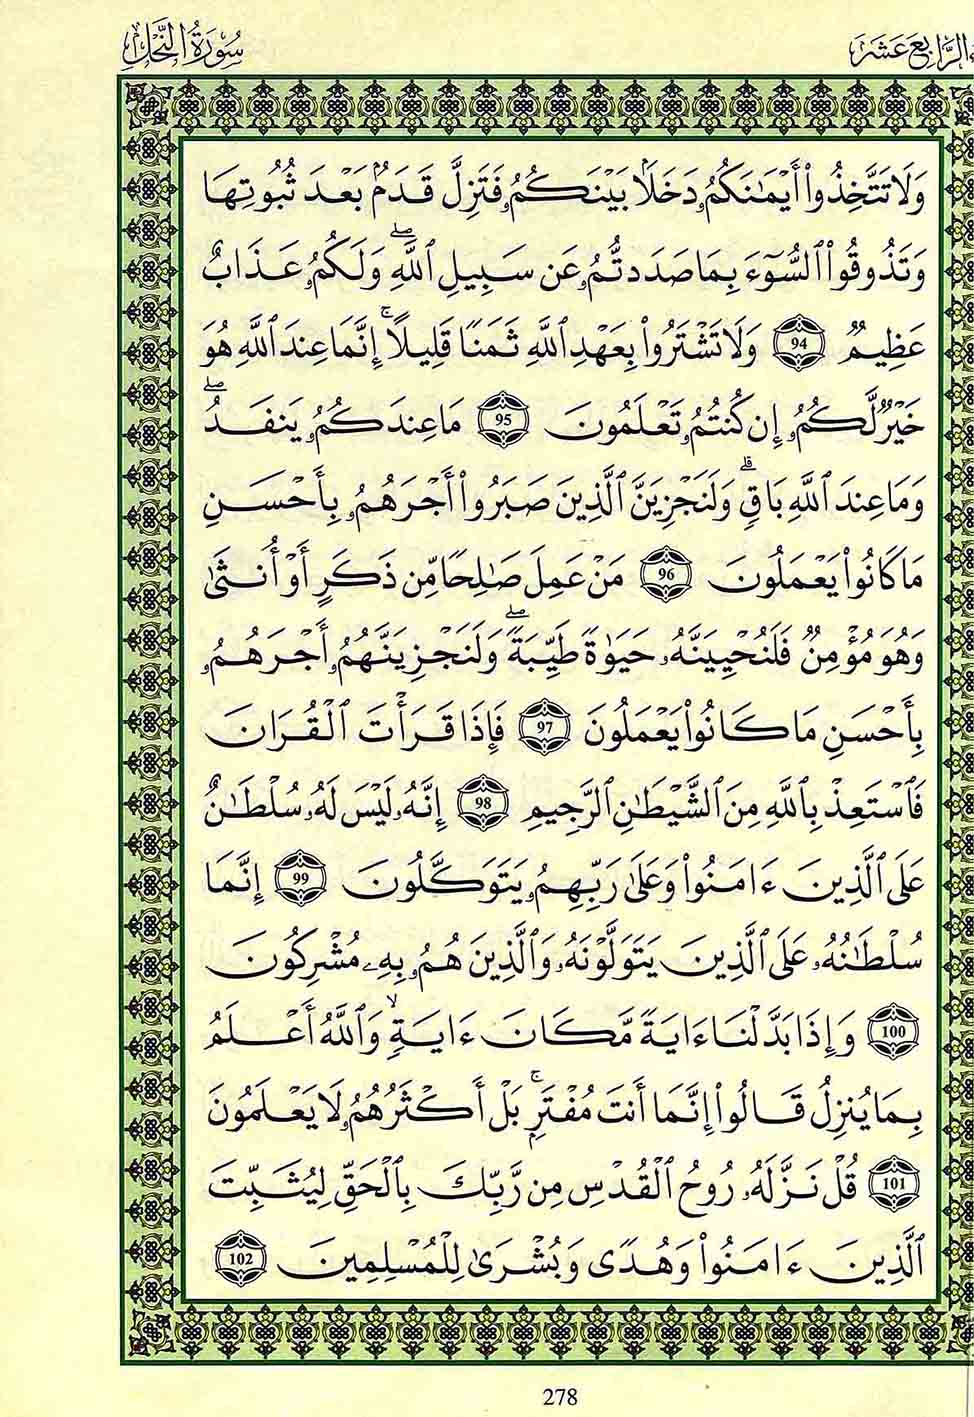 الرَّابِعَ عَشَرَ
سُورَةُ النَّحْلِ
وَلَا تَتَّخِذُوٓاْ أَيْمَٰنَكُمُۥ دَخَلَۢا بَيْنَكُمُۥ فَتَزِلَّ قَدَمُۢ بَعْدَ ثُبُوتِهَا
وَتَذُوقُواْ اُ۬لسُّوٓءَ بِمَا صَدَدتُّمُۥ عَن سَبِيلِ اِ۬للَّهِۖ وَلَكُمُۥ عَذَابٌ
عَظِيمٌ 94 وَلَا تَشْتَرُواْ بِعَهْدِ اِ۬للَّهِ ثَمَنًا قَلِيلًاۚ إِنَّمَا عِندَ اَ۬للَّهِ هُوَ
خَيْرٌ لَّكُمُۥ إِن كُنتُمُۥ تَعْلَمُونَ 95 مَا عِندَكُمُۥ يَنفَدُۖ
وَمَا عِندَ اَ۬للَّهِ بَاقٍۗ وَلَنَجْزِيَنَّ اَ۬لَّذِينَ صَبَرُوٓاْ أَجْرَهُمُۥ بِأَحْسَنِ
مَا كَانُواْ يَعْمَلُونَ 96 مَنْ عَمِلَ صَٰلِحًا مِّن ذَكَرٍ أَوْ أُنثَىٰ
وَهُوَ مُؤْمِنٌ فَلَنُحْيِيَنَّهُۥ حَيَوٰةً طَيِّبَةًۖ وَلَنَجْزِيَنَّهُمُۥ أَجْرَهُمُۥ
بِأَحْسَنِ مَا كَانُواْ يَعْمَلُونَ 97 فَإِذَا قَرَأْتَ اَ۬لْقُرَانَ
فَاسْتَعِذْ بِاللَّهِ مِنَ اَ۬لشَّيْطَٰنِ اِ۬لرَّجِيمِ 98 إِنَّهُۥ لَيْسَ لَهُۥ سُلْطَٰنٌ
عَلَى اَ۬لَّذِينَ ءَامَنُواْ وَعَلَىٰ رَبِّهِمُۥ يَتَوَكَّلُونَ 99 إِنَّمَا
سُلْطَٰنُهُۥ عَلَى اَ۬لَّذِينَ يَتَوَلَّوْنَهُۥ وَالَّذِينَ هُمُۥ بِهِۦ مُشْرِكُونَ
100 وَإِذَا بَدَّلْنَا ءَايَةً مَّكَانَ ءَايَةٍۙ وَاللَّهُ أَعْلَمُ
بِمَا يُنزِلُ قَالُوٓاْ إِنَّمَا أَنتَ مُفْتَرٍۚ بَلْ أَكْثَرُهُمُۥ لَا يَعْلَمُونَ
101 قُلْ نَزَّلَهُۥ رُوحُ اُ۬لْقُدْسِ مِن رَّبِّكَ بِالْحَقِّ لِيُثَبِّتَ
اَ۬لَّذِينَ ءَامَنُواْ وَهُدًى وَبُشْرَىٰ لِلْمُسْلِمِينَ 102
278